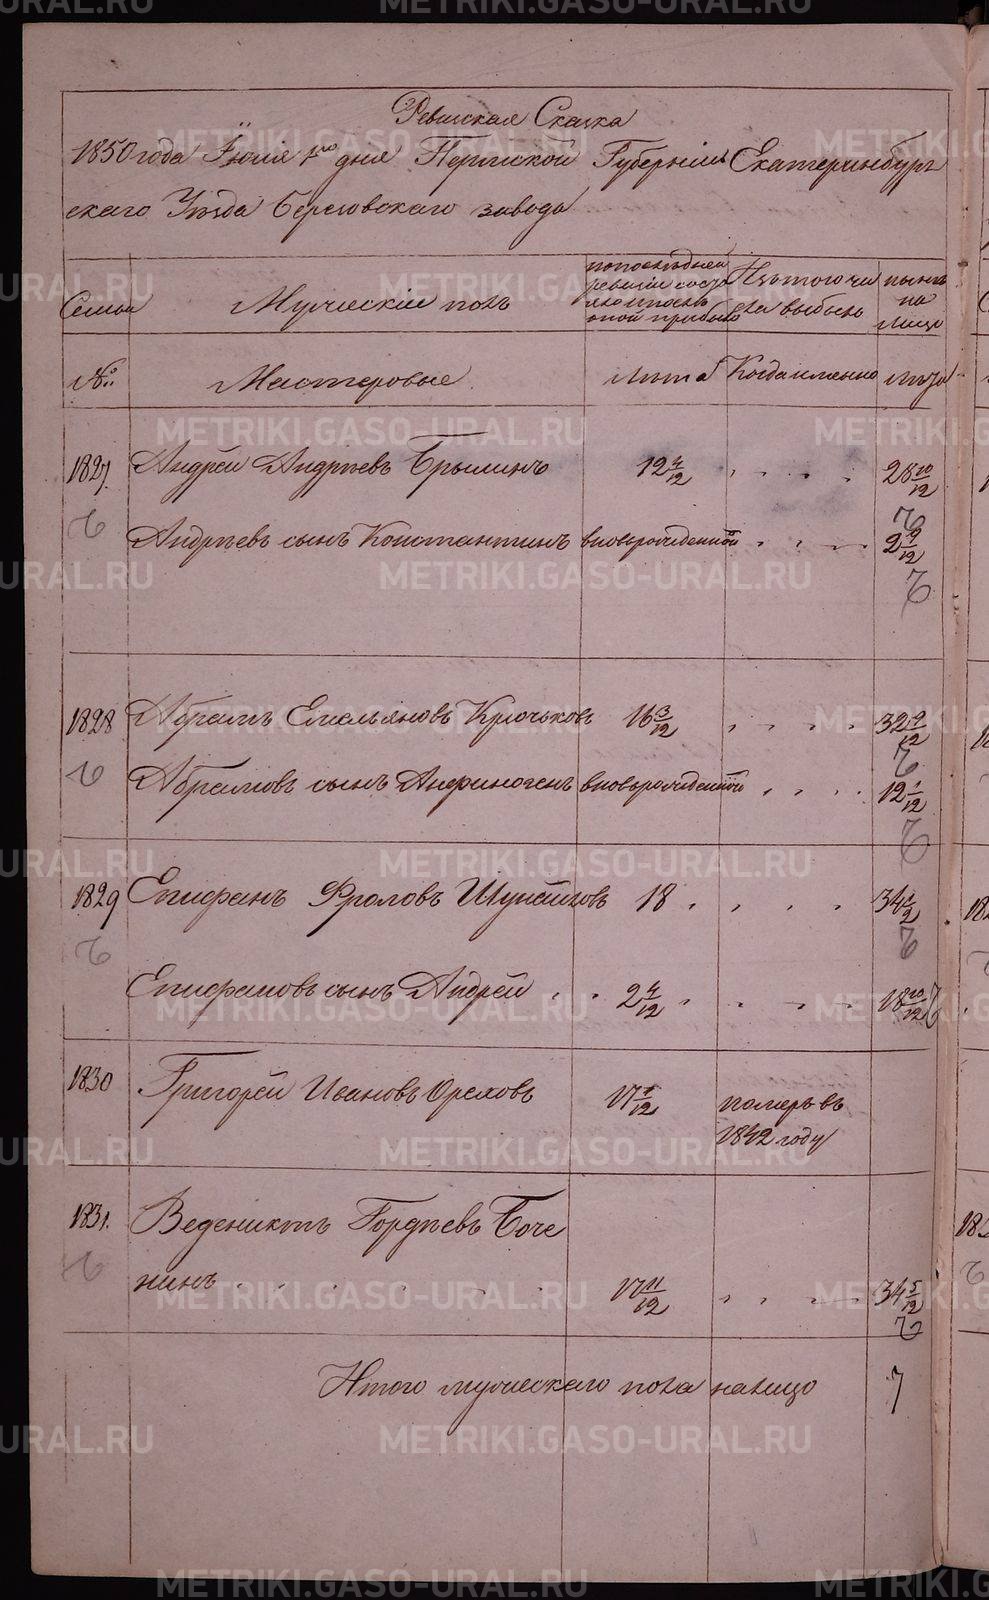 Ревизская Сказка
1850 года Июля 1го дня Пермской Губерніи Екатеринбург
скаго Уѣзда Березовскаго завода
Семьи
Мужескій полъ
по послѣдней
ревизіи состо
яло и послѣ
оной прибыло
Изъ того чи
сла выбыло
нынѣ
на
лицо
№
Мастеровые
лѣта
Когда именно
лѣта
1827. Андрей Андреевъ Брылинъ 12 4/12 28 10/12
Андреевъ сынъ Константинъ вновьрожденной 2 9/12
1828 Абрамъ Емельяновъ Крючьковъ 16 3/12 32 9/12
Абрамовъ сынъ Анфиногенъ вновьрожденной 12 1/12
1829 Епифанъ Фроловъ 18 34 1/2
Епифановъ сынъ Андрей 2 4/12 18 10/12
1830 Григорей Ивановъ Ореховъ 17 1/12 померъ въ
1842 году
1831. Веденихтъ Гордѣевъ Боче
нинъ 17 11/12 34 5/12
Итого мужескаго пола налицо 7
METRIKI.GASO-URAL.RU